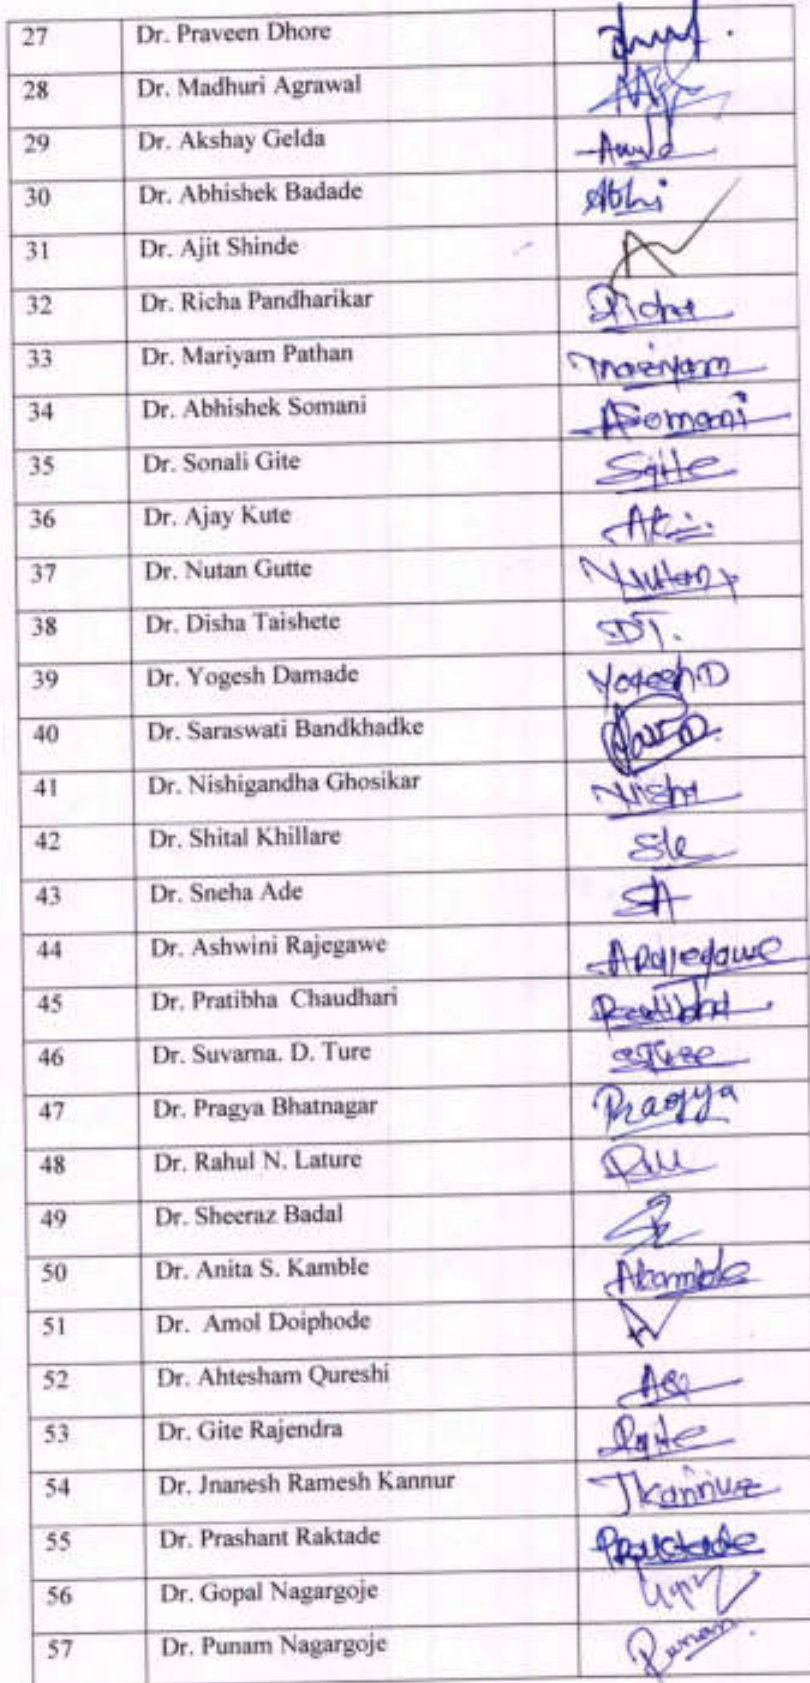 27 Dr. Praveen Dhore
28 Dr. Madhuri Agrawal
29 Dr. Akshay Gelda
30 Dr. Abhishek Badade Abhi
31 Dr. Ajit Shinde
32 Dr. Richa Pandharikar Richa
33 Dr. Mariyam Pathan Mariyam
34 Dr. Abhishek Somani ASomani
35 Dr. Sonali Gite SGite
36 Dr. Ajay Kute
37 Dr. Nutan Gutte Nutan
38 Dr. Disha Taishete DT.
39 Dr. Yogesh Damade Yogesh D
40 Dr. Saraswati Bandkhadke
41 Dr. Nishigandha Ghosikar Nisha
42 Dr. Shital Khillare
43 Dr. Sneha Ade SA
44 Dr. Ashwini Rajegawe ARajegawe
45 Dr. Pratibha Chaudhari Pratibha
46 Dr. Suvarna. D. Ture
47 Dr. Pragya Bhatnagar Pragya
48 Dr. Rahul N. Lature
49 Dr. Sheeraz Badal
50 Dr. Anita S. Kamble Akamble
51 Dr. Amol Doiphode
52 Dr. Ahtesham Qureshi
53 Dr. Gite Rajendra RGite
54 Dr. Jnanesh Ramesh Kannur JKannur
55 Dr. Prashant Raktade PRaktade
56 Dr. Gopal Nagargoje
57 Dr. Punam Nagargoje Punam